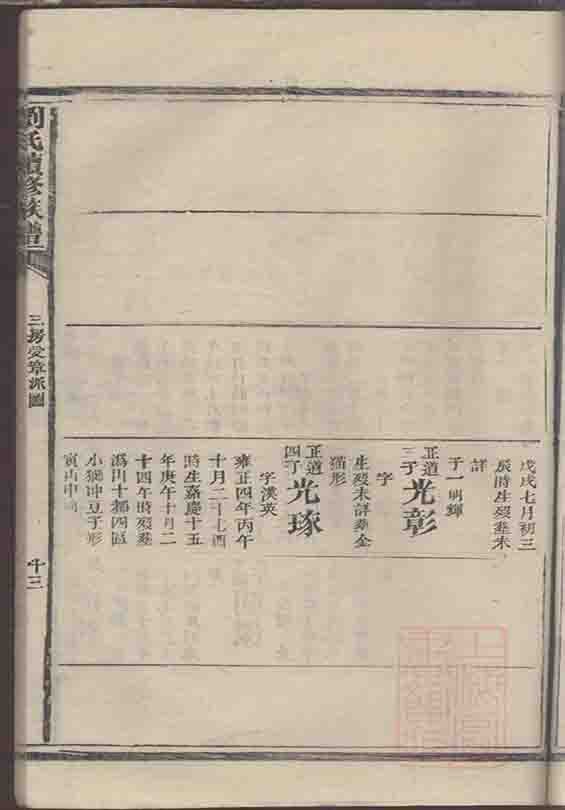 戊戌七月初三
辰時生歿葬未
詳
子一明輝
正道三子光彰
字
生歿未詳葬金
猫形
正道四子光琢
字漢英
雍正四年丙午
十月二十七酉
時生嘉慶十五
年庚午十月二
十四午時歿葬
溈山十都四區
小獅冲豆子形
寅山申
氏續修族譜
三房受章派圖
十三